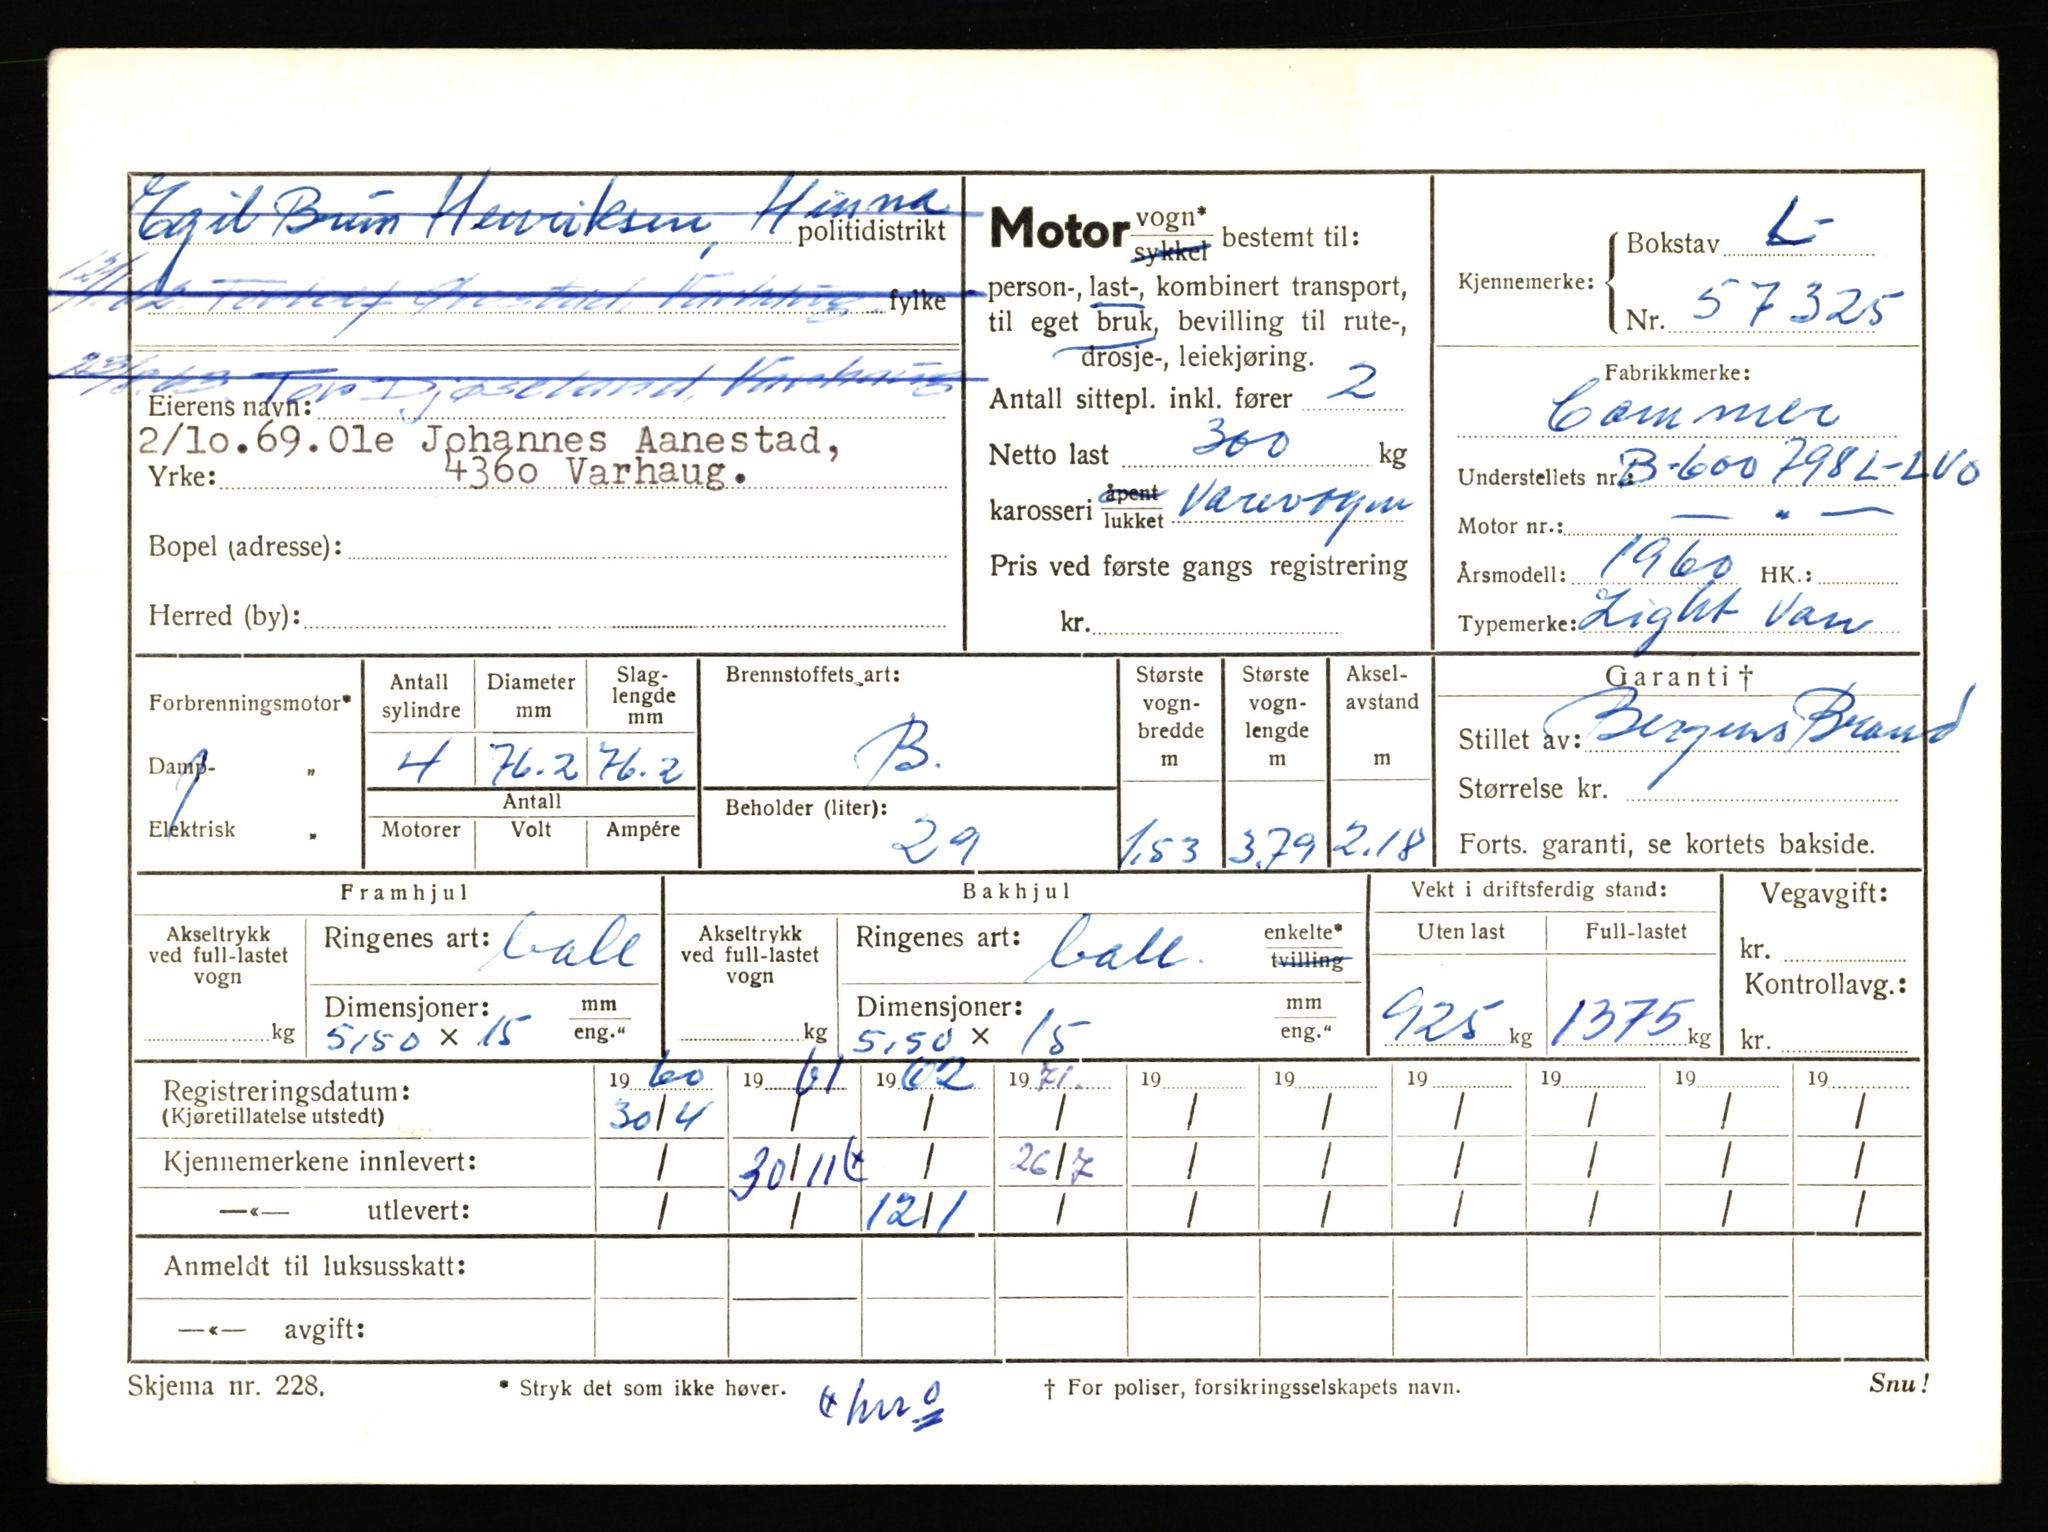 Egil Brun Henriksen, Hinna
politidistrikt
fylke
Tor Djøseland, Varhaug
Eierens navn:
2/1o.69.Ole Johannes Aanestad,
Yrke: 436o Varhaug.
Bopel (adresse):
Herred (by):
Motor vogn* sykkel bestemt til:
person-, last-, kombinert transport,
til eget bruk, bevilling til rute-,
drosje-, leiekjøring.
Antall sittepl. inkl. fører 2
Netto last 300 kg
karosseri åpent lukket Varevogn
Pris ved første gangs registrering
kr.
Kjennemerke:
Bokstav L-
Nr. 57325
Fabrikkmerke:
Commer
Understellets nr.: B-600 798 L-LVO
Motor nr.: — " —
Årsmodell: 1960 HK.:
Typemerke: Light Van
Forbrenningsmotor*
Damp- „
Elektrisk „
Antall sylindre
Diameter mm
Slag-lengde mm
4 76.2 76.2
Antall
Motorer Volt Ampére
Brennstoffets art:
B.
Beholder (liter):
29
Største vogn-bredde m
1.53
Største vogn-lengde m
3.79
Aksel-avstand m
2.18
Garanti †
Stillet av: Bergens Brand
Størrelse kr.
Forts. garanti, se kortets bakside.
Framhjul
Akseltrykk ved full-lastet vogn
kg
Ringenes art: ball
Dimensjoner: mm eng."
5,50 × 15
Bakhjul
Akseltrykk ved full-lastet vogn
kg
Ringenes art: ball. enkelte* tvilling
Dimensjoner: mm eng."
5,50 × 15
Vekt i driftsferdig stand:
Uten last Full-lastet
925 kg 1375 kg
Vegavgift:
kr.
Kontrollavg.:
kr.
Registreringsdatum: 19 60 19 61 19 62 19 71. 19 19 19 19 19 19
(Kjøretillatelse utstedt) 30/4 / / / / / / / / /
Kjennemerkene innlevert: / 30/11 (x / 26/7 / / / / / /
—«— utlevert: / / 12/1 / / / / / / /
Anmeldt til luksusskatt:
—«— avgift:
Skjema nr. 228.
* Stryk det som ikke høver.
† For poliser, forsikringsselskapets navn.
Snu!